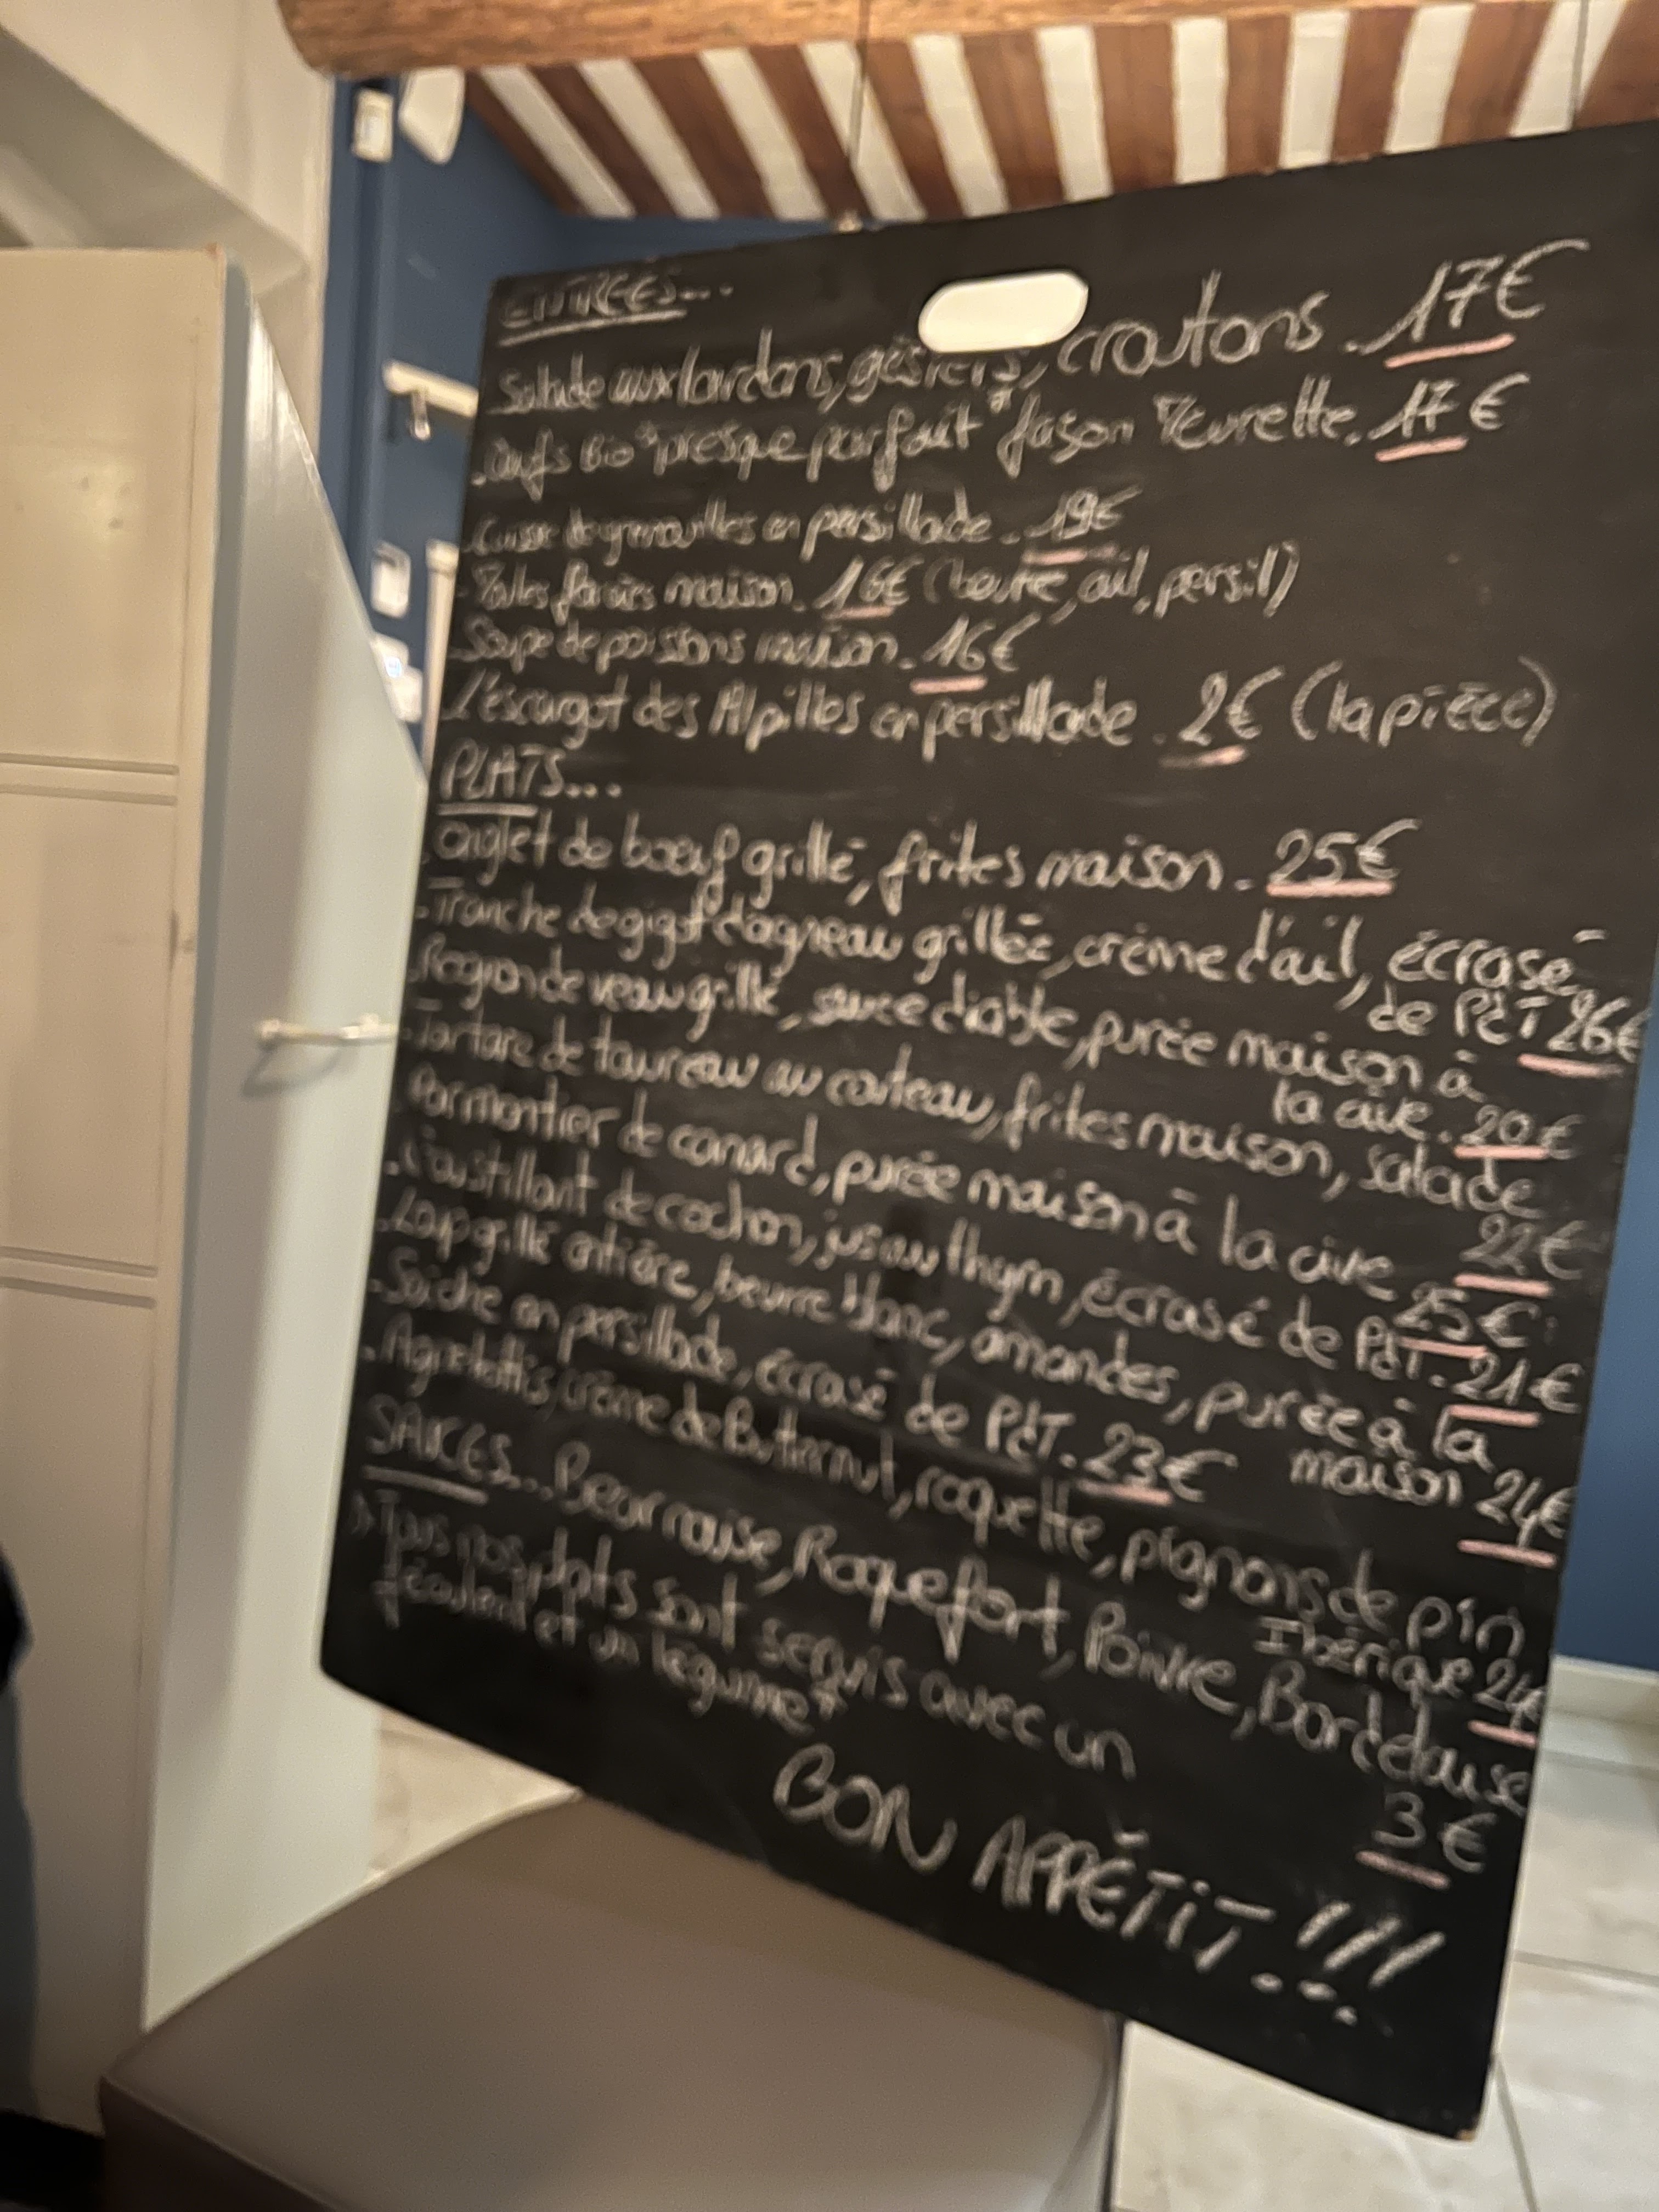 ENTRÉES...
Salade aux lardons, gésiers, croutons. 17€
Oeufs Bio "presque parfait" façon Meurette. 17€
Cuisse de grenouilles en persillade. 19€
- farcies maison. 16€ (beurre, ail, persil)
Soupe de poissons maison. 16€
L'escargot des Alpilles en persillade. 2€ (la pièce)
PLATS...
Onglet de boeuf grillé, frites maison. 25€
- Tranche de gigot d'agneau grillée, crème d'ail, écrasé
de PdT 26€
Rognon de veau grillé, sauce diable, purée maison à
la cive. 20€
- Tartare de taureau au couteau, frites maison, salade
22€
Parmentier de canard, purée maison à la cive
25€
- Croustillant de cochon, jus au thym, écrasé de PdT. 21€
. grillé entière, beurre blanc, amandes, purée à la
maison 24€
. Seiche en persillade, écrasé de PdT. 23€
. crème de Butternut, roquette, pignons de pin
Ibérique 24€
SAUCES... Bearnaise, Roquefort, Poivre, Bordelaise
3€
Tous nos plats sont servis avec un
féculent et un légume*
BON APPÉTIT!!!